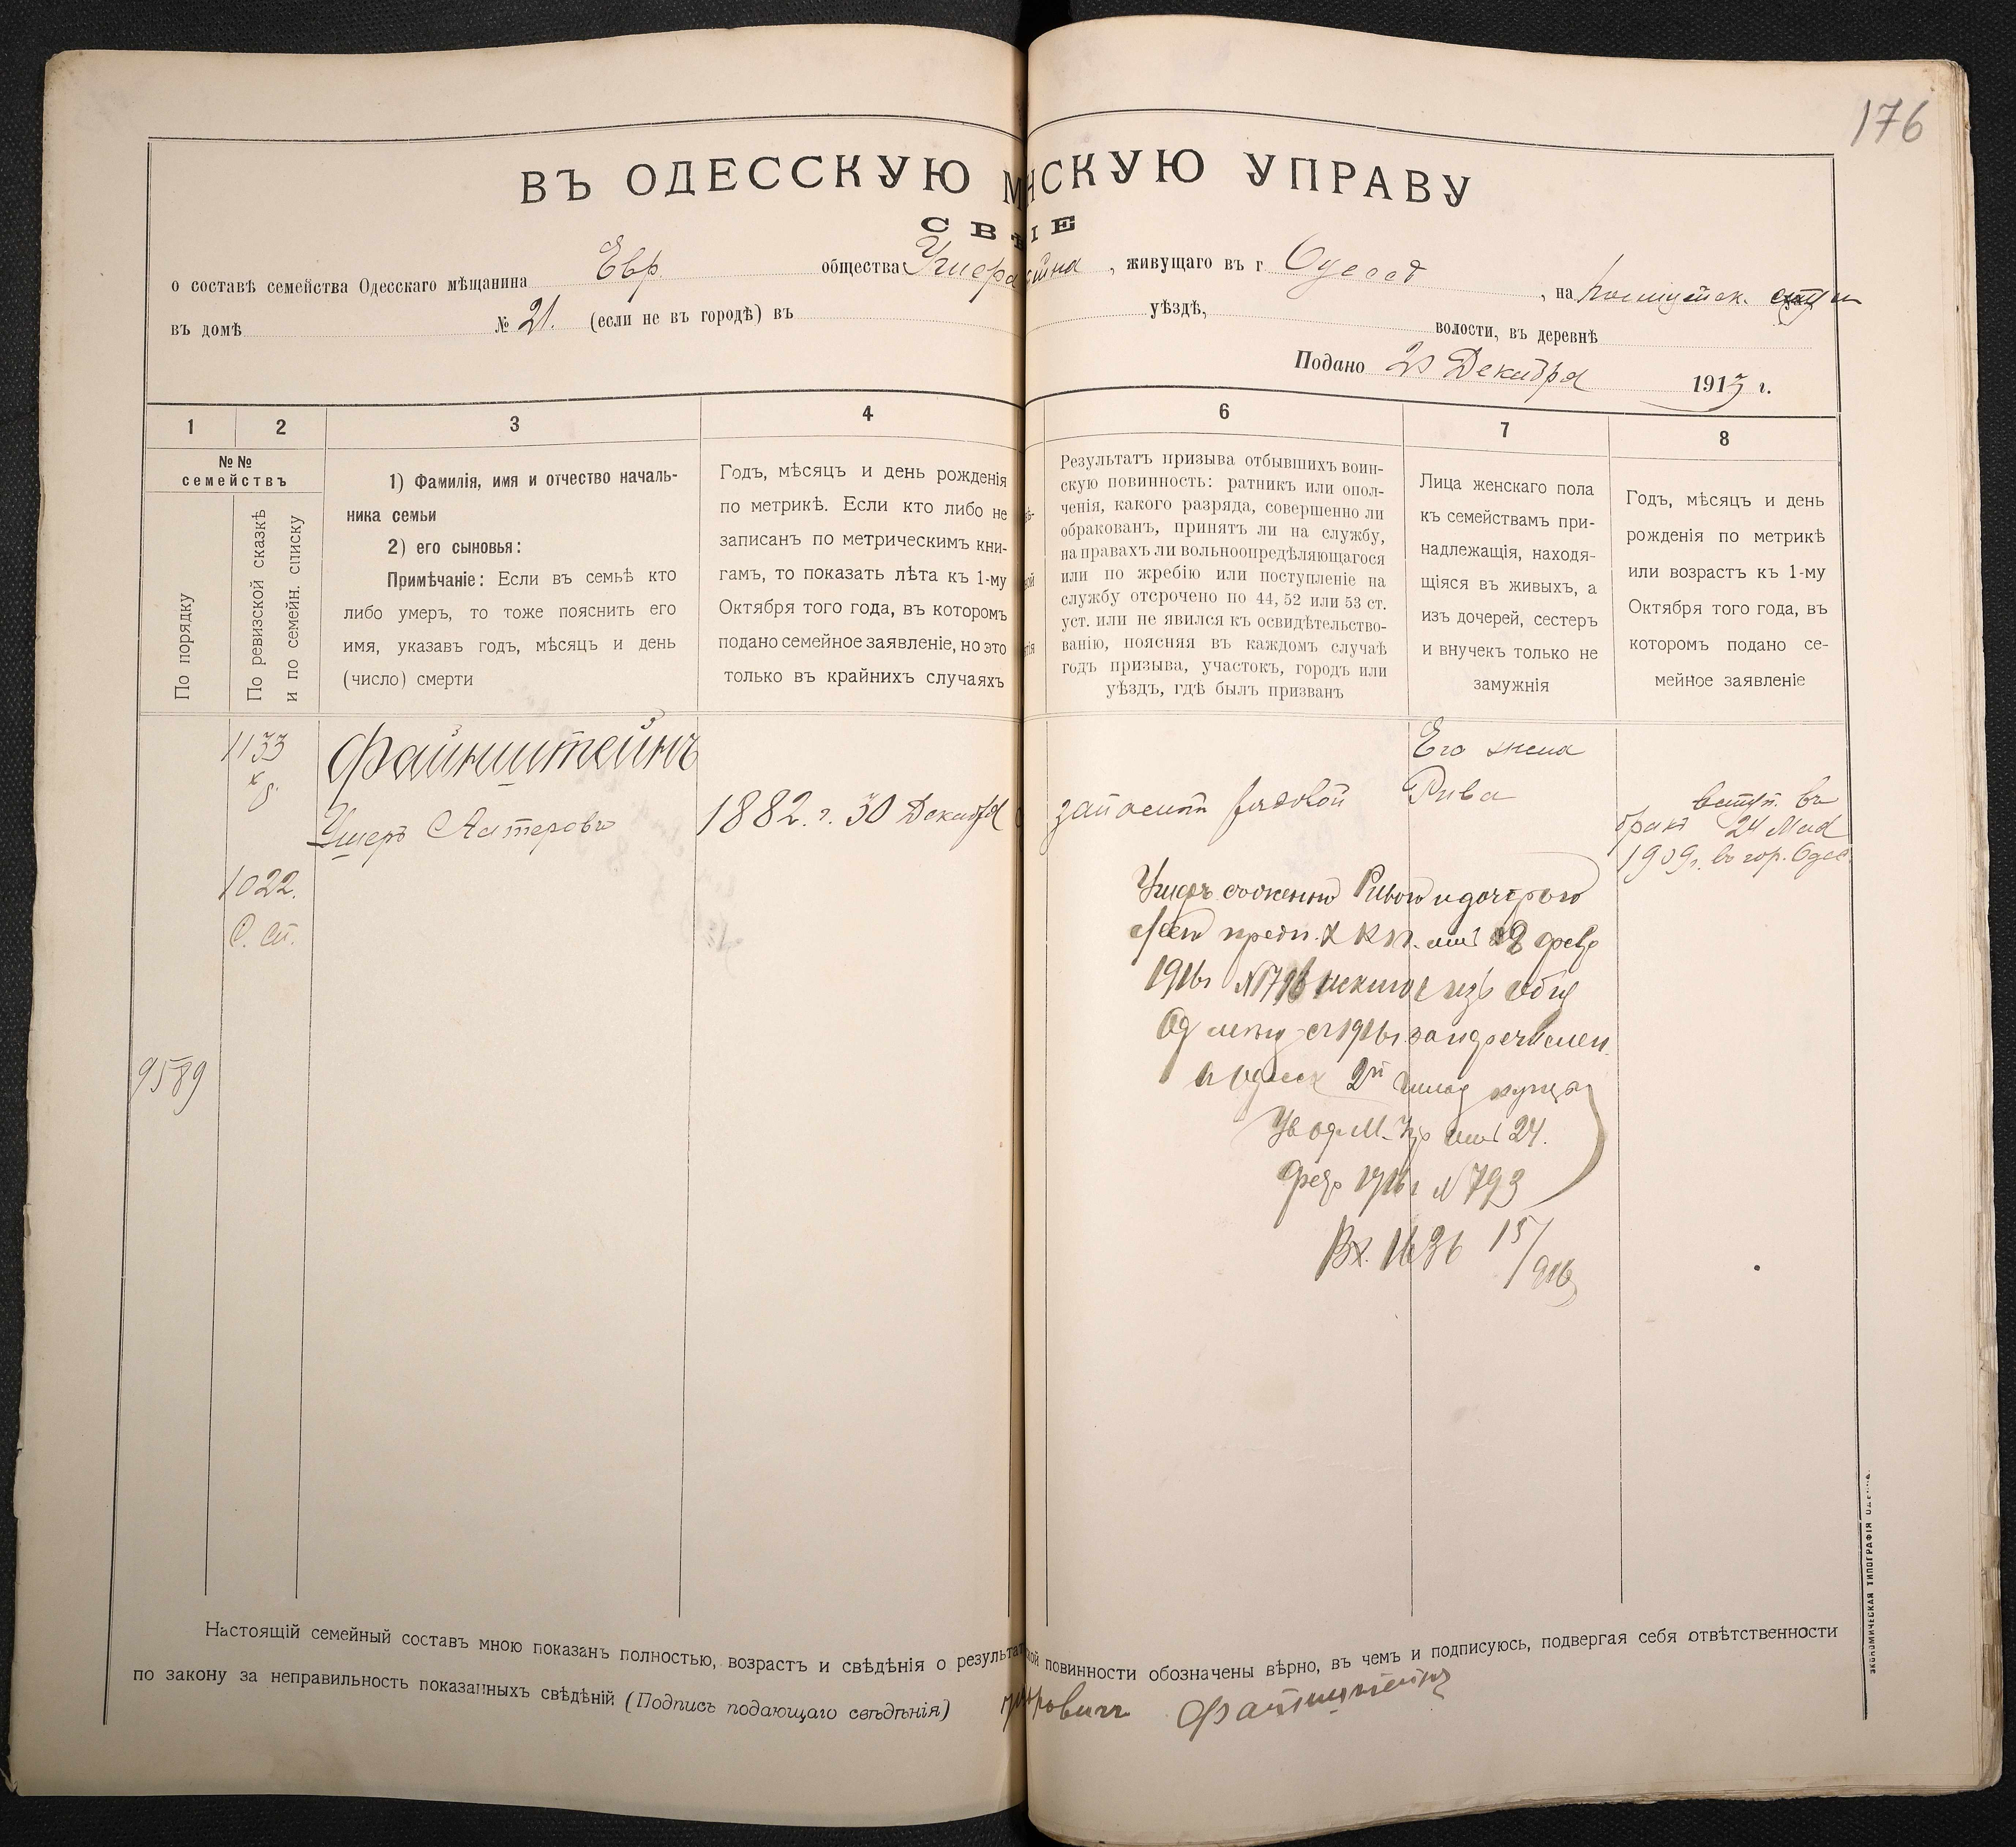 176
ВЪ ОДЕССКУЮ М НСКУЮ УПРАВУ
СВѢ ІЕ
о составѣ семейства Одесскаго мѣщанина Евр. общества Ушера , живущаго въ г Одессѣ , на
въ домѣ № 21. (если не въ городѣ) въ уѣздѣ, волости, въ деревнѣ
Подано Декабря 1913 г.
1 2 3 4 6 7 8
№№ семействъ
По порядку
По ревизской сказкѣ
и по семейн. списку
1) Фамилія, имя и отчество началь-
ника семьи
2) его сыновья:
Примѣчаніе: Если въ семьѣ кто
либо умеръ, то тоже пояснить его
имя, указавъ годъ, мѣсяцъ и день
(число) смерти
Годъ, мѣсяцъ и день рожденія
по метрикѣ. Если кто либо не
записанъ по метрическимъ кни-
гамъ, то показать лѣта къ 1-му
Октября того года, въ которомъ
подано семейное заявленіе, но это
только въ крайнихъ случаяхъ
Результатъ призыва отбывшихъ воин-
скую повинность: ратникъ или опол-
ченія, какого разряда, совершенно ли
обракованъ, принятъ ли на службу,
на правахъ ли вольноопредѣляющагося
или по жребію или поступленіе на
службу отсрочено по 44, 52 или 53 ст.
уст. или не явился къ освидѣтельство-
ванію, поясняя въ каждомъ случаѣ
годъ призыва, участокъ, городъ или
уѣздъ, гдѣ былъ призванъ
Лица женскаго пола
къ семействамъ при-
надлежащія, находя-
щіяся въ живыхъ, а
изъ дочерей, сестеръ
и внучекъ только не
замужнія
Годъ, мѣсяцъ и день
рожденія по метрикѣ
или возрастъ къ 1-му
Октября того года, въ
которомъ подано се-
мейное заявленіе
1133
Файнштейнъ
Ушеръ
1882. г. 30 Декабря
запасный рядовой
Его жена
Рива
вступ. въ
бракъ 24 Мая
1909г. въ гор. Одес
1022.
С. сп.
9589
Ушеръ съ женою Ривою и дочерью
предп. Х К П. отъ февр
1916г N 1796 исключ изъ общ
Од мѣщ съ 1916г за перечислен
в одесск 2й гильд купцы
Ув од М. Упр отъ 24.
Февр 1916г N 793
Вх. 1636 15/916
Настоящій семейный составъ мною показанъ полностью, возрастъ и свѣдѣнія о результат ской повинности обозначены вѣрно, въ чемъ и подписуюсь, подвергая себя отвѣтственности
по закону за неправильность показанныхъ свѣдѣній (Подпись подающаго свѣдѣнія) Файнштейнъ
ЭКОНОМИЧЕСКАЯ ТИПОГРАФІЯ